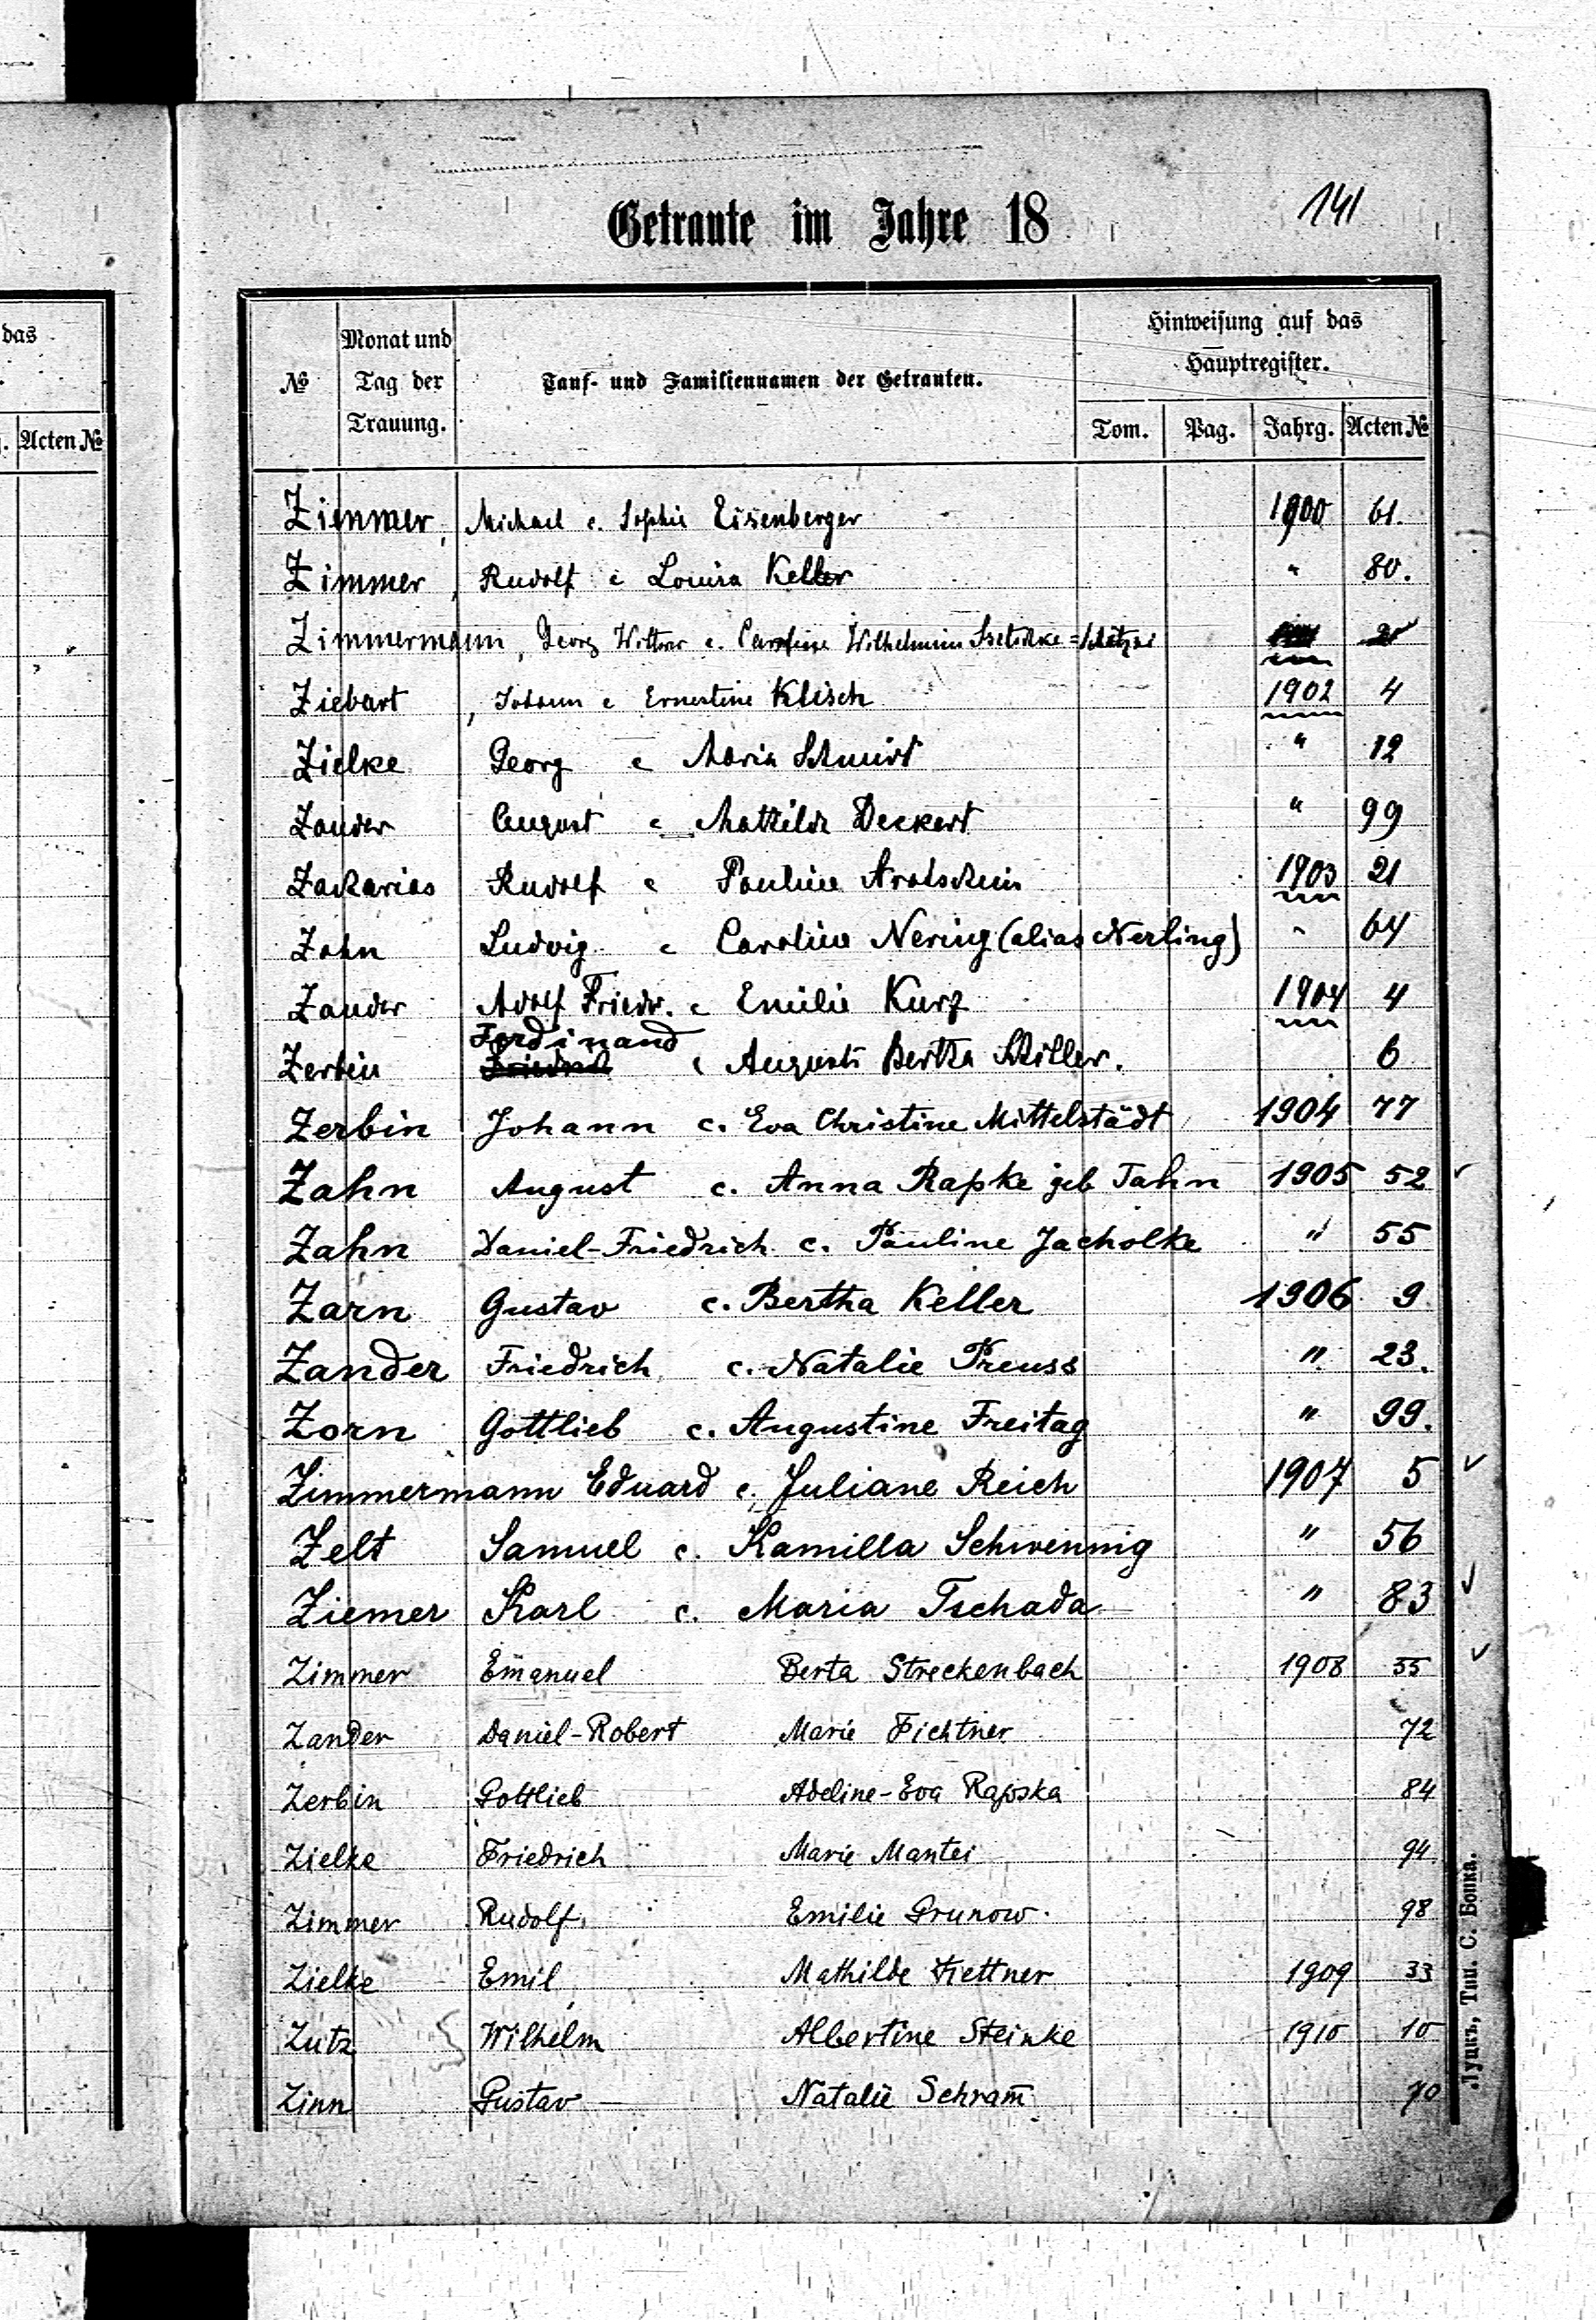 141
Getraute im Jahre 18
das
Acten №
№
Monat und Tag der Trauung.
Tauf- und Familiennamen der Getrauten.
Hinweisung auf das Hauptregister.
Tom. Pag. Jahrg. Acten №
Zimmer, Michael c. Sophie Eisenberger 1900 61.
Zimmer, Rudolf c Louisa Keller " 80.
Zimmermann, Georg c. Caroline Wilhelmine 21
Ziebart, Johann c Ernestine Klisch 1902 4
Zielke Georg c Maria Schmidt " 12
Zander August c Mathilde Deckert " 99
Zacharias Rudolf c Pauline 1903 21
Zahn Ludvig c Caroline Nering (alias Nerling) " 64
Zander Adolf Friedr. c Emilie Kurz 1904 4
Ferdinand
Zerbin Friedrich c Auguste Bertha Schiller. 6
Zerbin Johann c. Eva Christine Mittelstädt 1904 77
Zahn August c. Anna Rapke geb Jahn 1905 52
Zahn Daniel-Friedrich c. Pauline Jacholke " 55
Zarn Gustav c. Bertha Keller 1906 9
Zander Friedrich c. Natalie Preuss " 23.
Zorn Gottlieb c. Augustine Freitag " 99.
Zimmermann Eduard c. Juliane Reich 1907 5
Zelt Samuel c. Kamilla Schwennig " 56
Ziemer Karl c. Maria Tschada " 83
Zimmer Emanuel Berta Streckenbach 1908 55
Zander Daniel-Robert Marie Fichtner 72
Zerbin Gottlieb Adeline-Eva Rapska 84
Zielke Friedrich Marie Mantei 94
Zimmer Rudolf Emilie Grunow. 98
Zielke Emil Mathilde Fiettner 1909 33
Zutz Wilhelm Albertine Steinke 1910 10
Zinn Gustav Natalie Schram̄ 70
Луцкъ, Тип. С. Бонка.